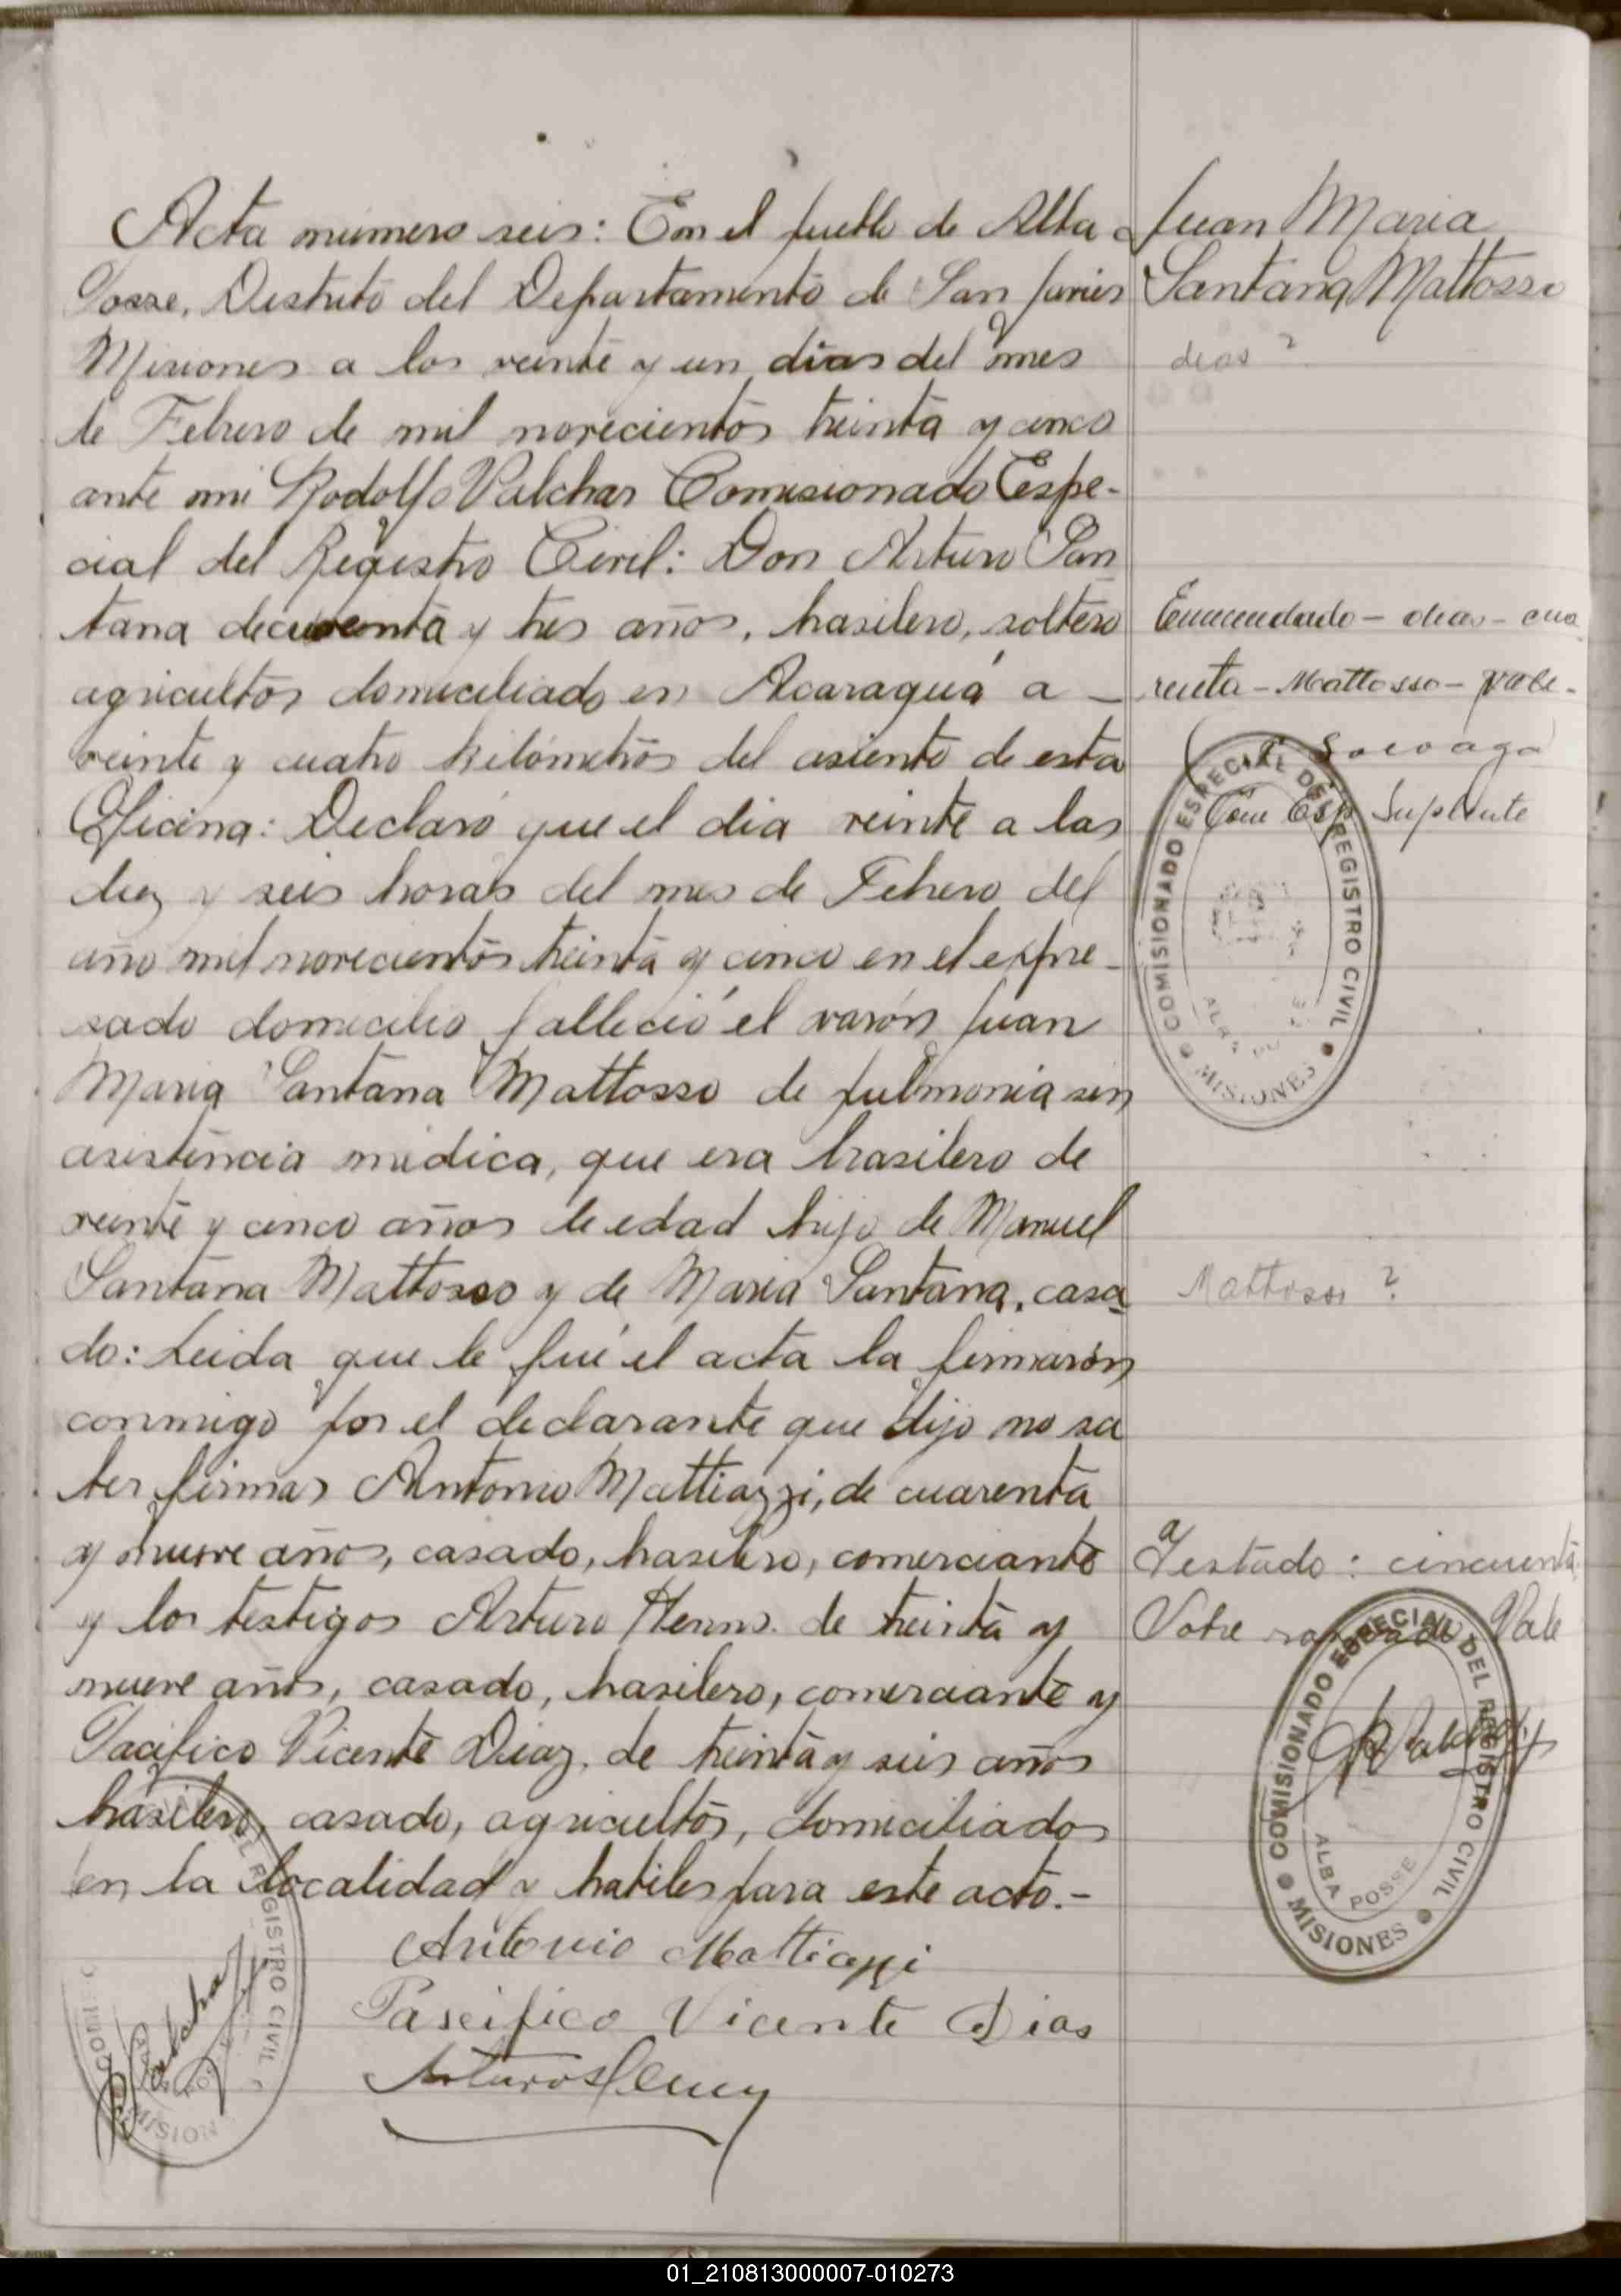 Acta numero seis: En el pueblo de Alba
Posse, Distrito del Departamento de San Javier
Misiones a los veinte y un dias del mes
de Febrero de mil novecientos treinta y cinco
ante mi Rodolfo Valchar Comisionado Espe-
cial del Registro Civil: Don Arturo San
tana de cuarenta y tres años, brasilero, soltero
agricultor domiciliado en Acaraguá a -
veinte y cuatro kilómetros del asiento de esta
Oficina: Declaró que el dia veinte a las
diez y seis horas del mes de Febrero del
año mil novecientos treinta y cinco en el expre-
sado domicilio falleció el varón Juan
Maria Santana Mattosso de pulmonia sin
asistencia médica, que era brasilero de
veinte y cinco años de edad hijo de Manuel
Santana Mattosso y de Maria Santana, casa
do: Leida que le fué el acta la firmaron
conmigo por el declarante que dijo no sa
ber firmar Antonio Mattiazzi, de cuarenta
y nueve años, casado, brasilero, comerciante
y los testigos Arturo Henn. de treinta y
nueve años, casado, brasilero, comerciante y
Pacifico Vicente Diaz, de treinta y seis años
brasilero, casado, agricultor, domiciliados
en la localidad y habiles para este acto.-
Antonio Mattiazzi
Pascifico Vicente Dias
Arturo Henn
R Valchar
Juan Maria
Santana Mattosso
dias ?
Enmendado - dias - cua
renta - Mattosso - Vale -
Com Esp Suplente
COMISIONADO ESPECIAL DEL REGISTRO CIVIL
ALBA POSSE
MISIONES
Mattosso ?
Testado: cincuenta
Vale
COMISIONADO ESPECIAL DEL REGISTRO CIVIL
ALBA POSSE
MISIONES
01_210813000007-010273